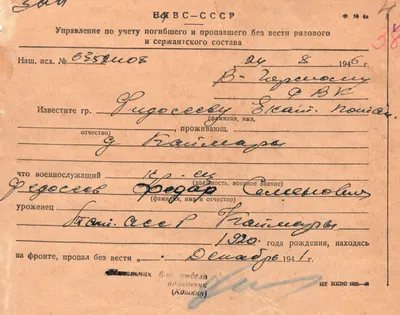 ВКВС—СССР
Ф. № 4а
Управление по учету погибшего и пропавшего без вести рядового
и сержантского состава
Наш. исх. №
24 8 1946 г.
РВК
Известите гр. Федосееву Екат.
(фамилия, имя,
отчество)
, проживающ.
д Каймары
что военнослужащий кр-ец
(должность, военное звание)
Федосеев Федор Семенович
(фамилия, имя и отчество)
уроженец
Тат. АССР Каймары
1920 года рождения, находясь
на фронте, пропал без вести Декабрь 1941 г.
Начальник 6-го отдела
полковник
(Кошкин)